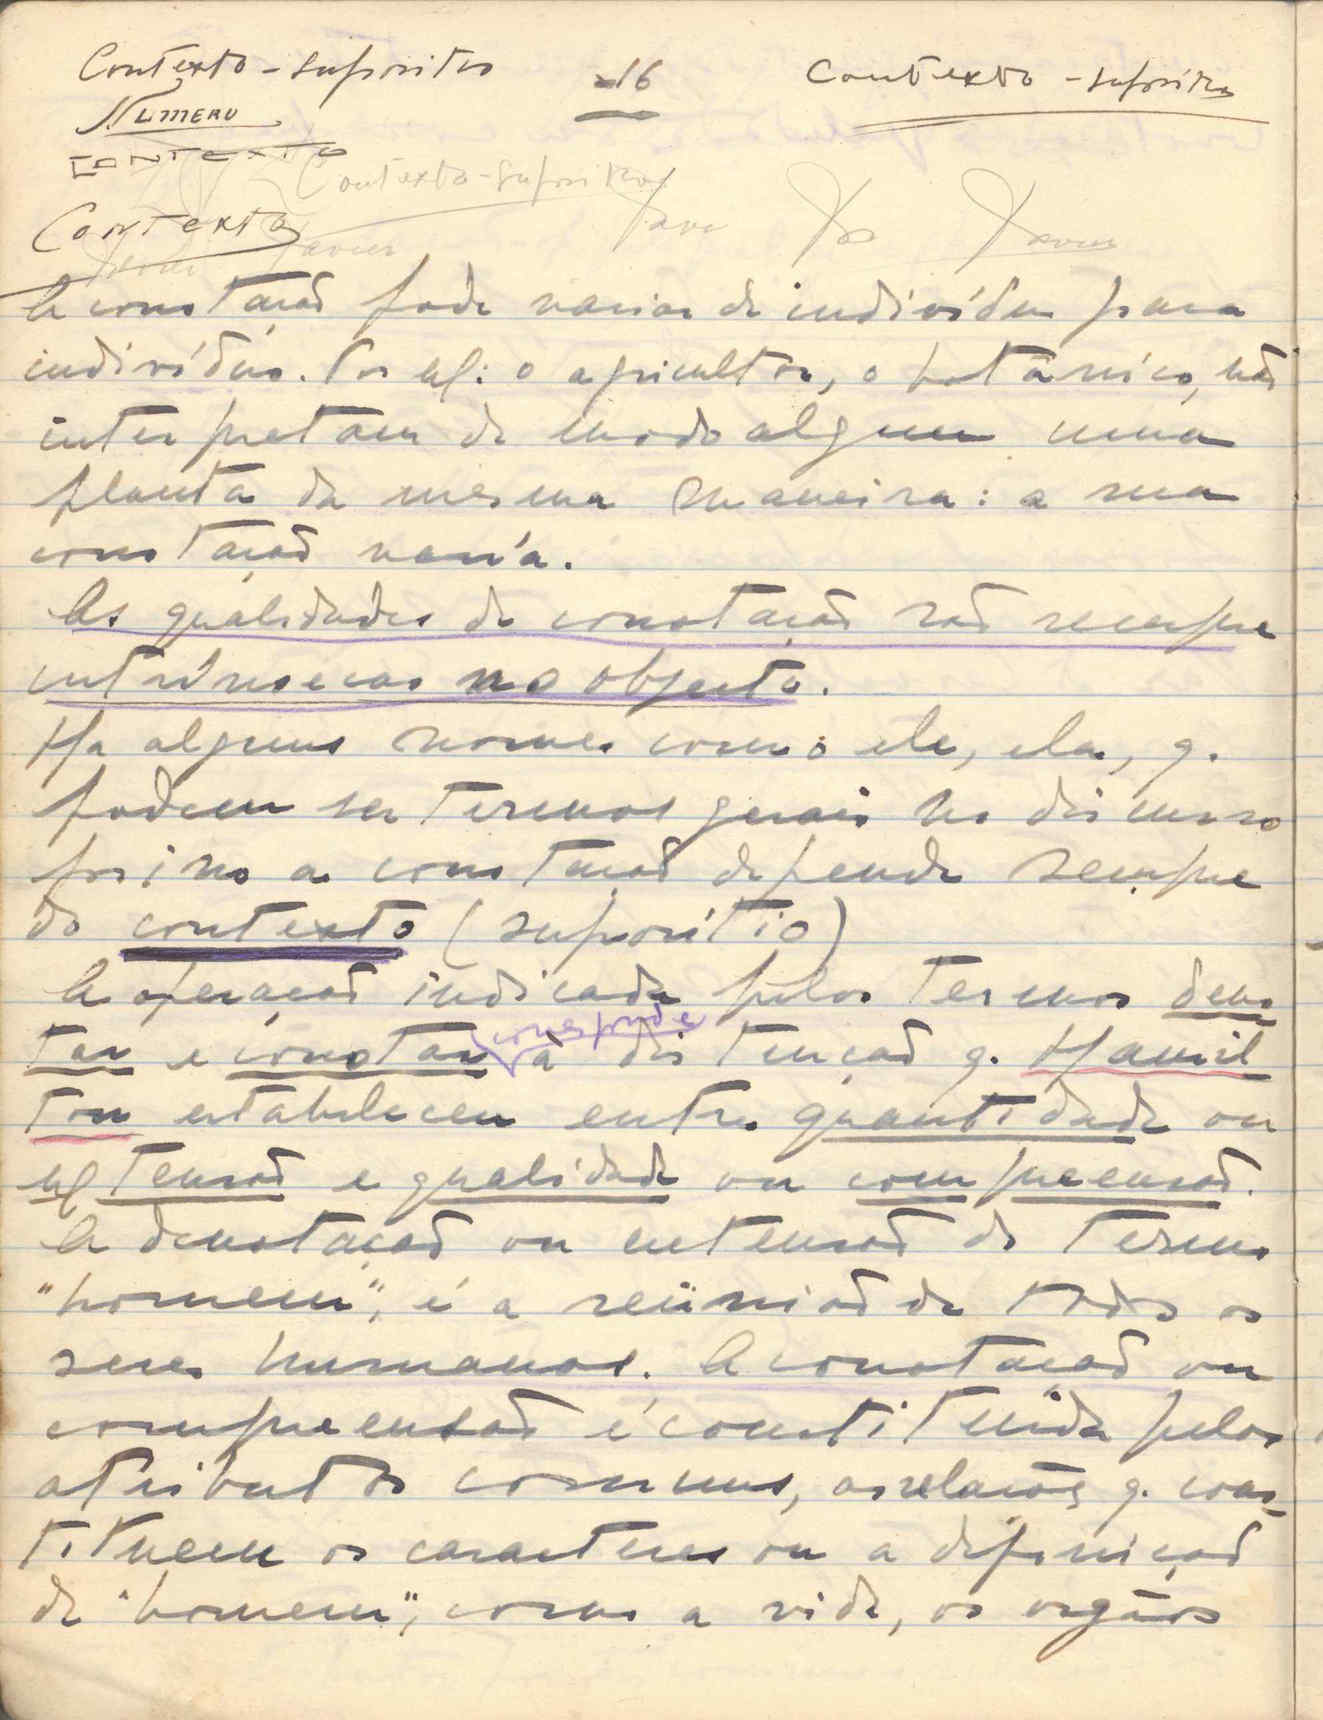 Contexto - supositio
16
Contexto - supositio
NUMERO
CONTEXTO
Contexto - supositio
Contexto
Xavier
Xavier
A conotação pode variar de indivíduo para
indivíduo. Por ex: o agricultor, o botânico, não
interpretam de modo algum uma
planta da mesma maneira: a sua
conotação varía.
As qualidades da conotação são sempre
intrínsecas no objecto.
Ha alguns nomes como: ele, ela, q.
podem ser termos gerais no discurso
por isso a conotação depende sempre
do contexto (supositio)
A operação indicada pelos termos deno
tar e conotar corresponde à distinção q. Hamil
ton estabeleceu entre quantidade ou
extensão e qualidade ou compreensão.
A denotação ou extensão do termo
"homem", é a reünião de todos os
seres humanos. A conotação ou
compreensão é constituida pelos
atributos comuns, as relações q. cons-
tituem os caracteres ou a definição
de "homem", como a vida, os orgãos